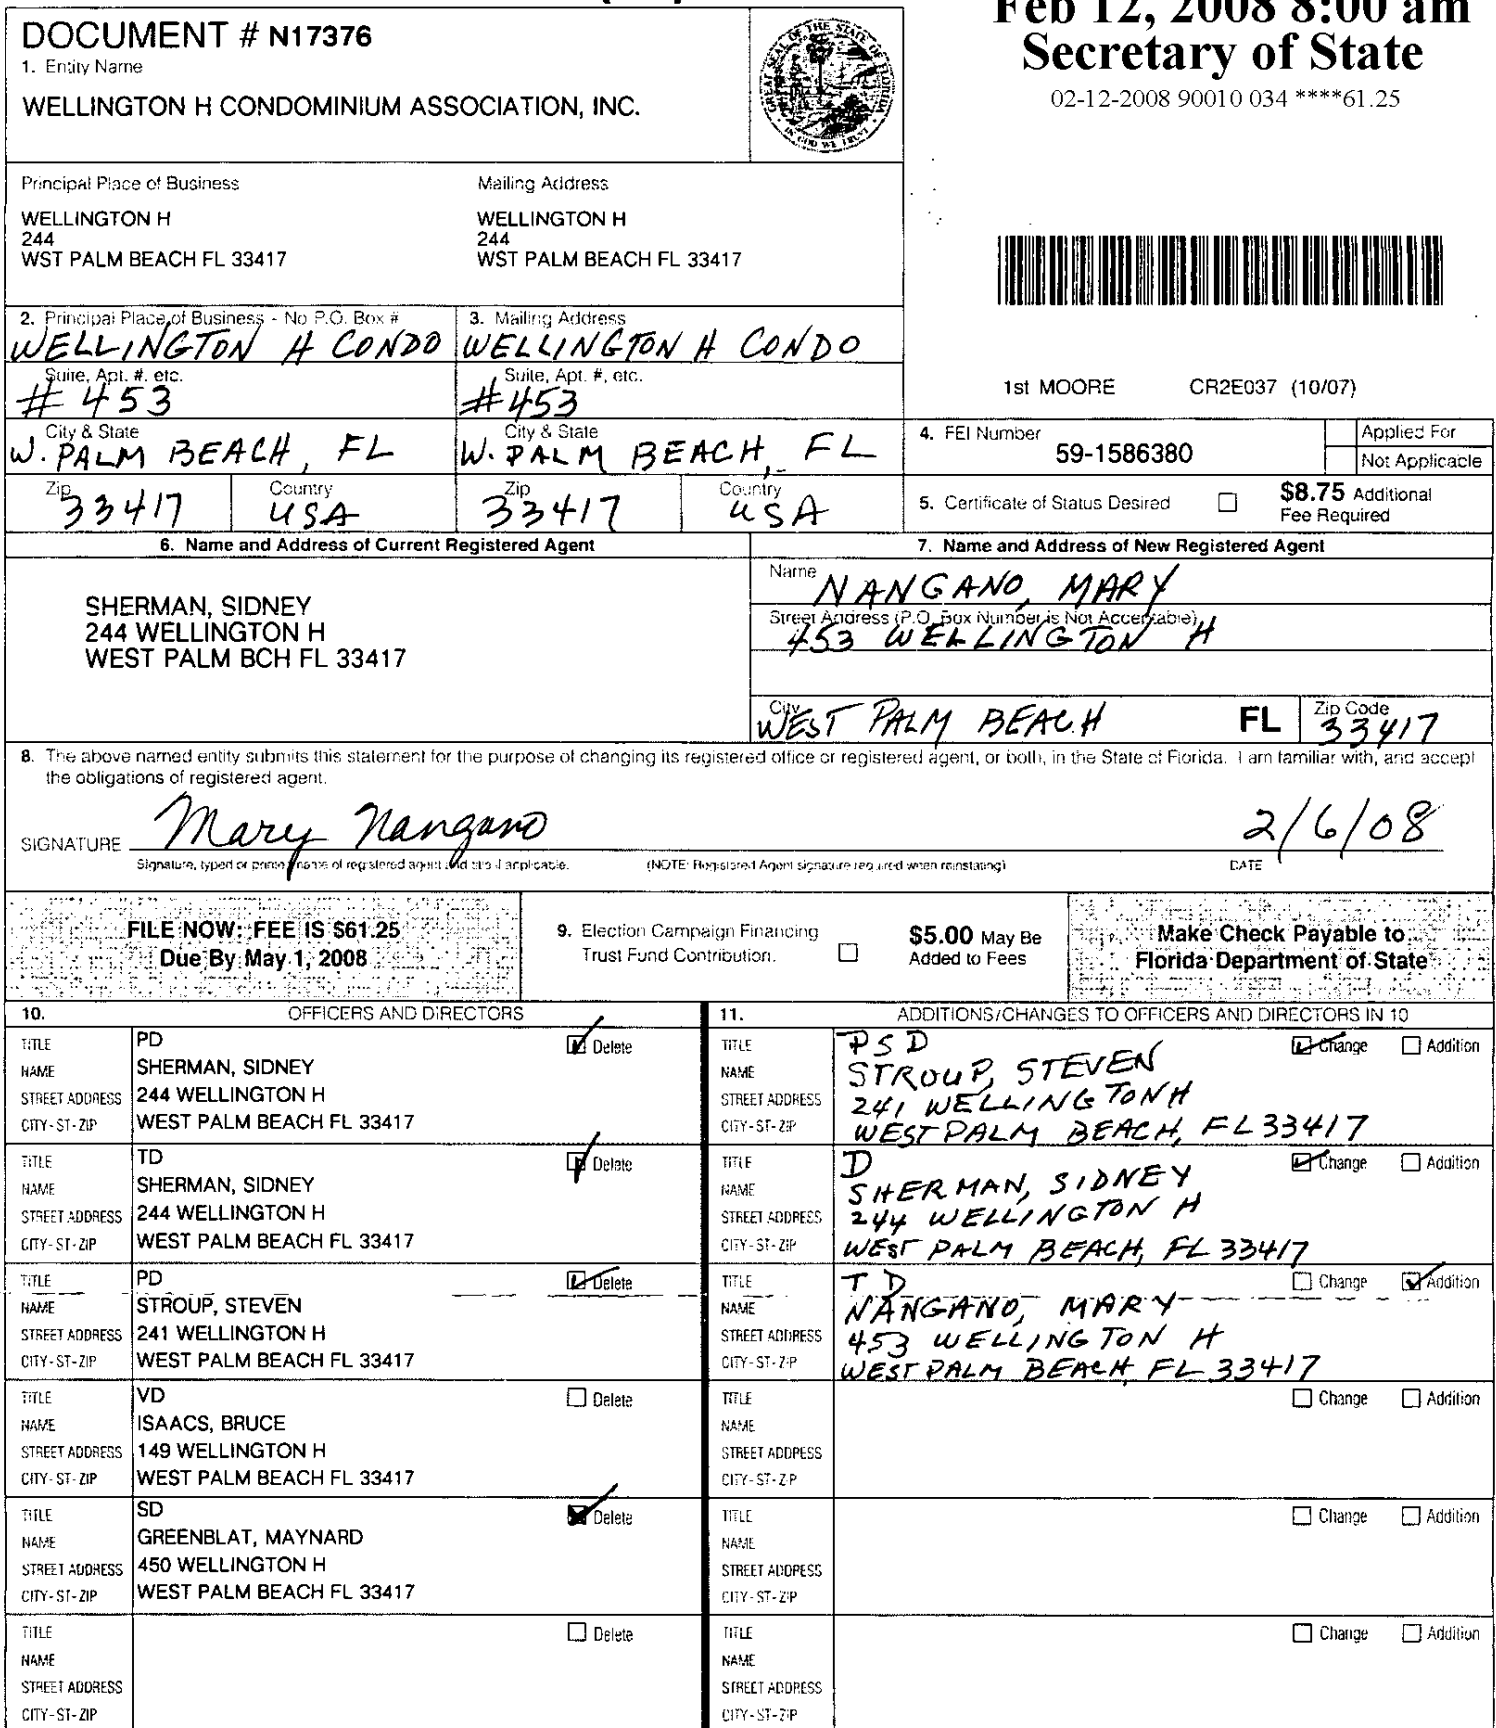 Feb 12, 2008 8:00 am
Secretary of State
02-12-2008 90010 034 ****61.25
DOCUMENT # N17376
1. Entity Name
WELLINGTON H CONDOMINIUM ASSOCIATION, INC.
GREAT SEAL OF THE STATE OF FLORIDA
IN GOD WE TRUST
Principal Place of Business
WELLINGTON H
244
WST PALM BEACH FL 33417
Mailing Address
WELLINGTON H
244
WST PALM BEACH FL 33417
2. Principal Place of Business - No P.O. Box #
WELLINGTON H CONDO
Suite, Apt. #, etc.
#453
City & State
W. PALM BEACH, FL
Zip
33417
Country
USA
3. Mailing Address
WELLINGTON H CONDO
Suite, Apt. #, etc.
#453
City & State
W. PALM BEACH, FL
Zip
33417
Country
USA
1st MOORE CR2E037 (10/07)
4. FEI Number
59-1586380
Applied For
Not Applicable
5. Certificate of Status Desired
$8.75 Additional
Fee Required
6. Name and Address of Current Registered Agent
SHERMAN, SIDNEY
244 WELLINGTON H
WEST PALM BCH FL 33417
7. Name and Address of New Registered Agent
Name
NANGANO, MARY
Street Address (P.O. Box Number is Not Acceptable)
453 WELLINGTON H
City
WEST PALM BEACH
FL
Zip Code
33417
8. The above named entity submits this statement for the purpose of changing its registered office or registered agent, or both, in the State of Florida. I am familiar with, and accept
the obligations of registered agent.
SIGNATURE Mary Nangano
2/6/08
Signature, typed or printed name of registered agent and title if applicable.
(NOTE: Registered Agent signature required when reinstating)
DATE
FILE NOW: FEE IS $61.25
Due By May 1, 2008
9. Election Campaign Financing
Trust Fund Contribution.
$5.00 May Be
Added to Fees
Make Check Payable to
Florida Department of State
10. OFFICERS AND DIRECTORS
TITLE PD Delete
NAME SHERMAN, SIDNEY
STREET ADDRESS 244 WELLINGTON H
CITY-ST-ZIP WEST PALM BEACH FL 33417
TITLE TD Delete
NAME SHERMAN, SIDNEY
STREET ADDRESS 244 WELLINGTON H
CITY-ST-ZIP WEST PALM BEACH FL 33417
TITLE PD Delete
NAME STROUP, STEVEN
STREET ADDRESS 241 WELLINGTON H
CITY-ST-ZIP WEST PALM BEACH FL 33417
TITLE VD Delete
NAME ISAACS, BRUCE
STREET ADDRESS 149 WELLINGTON H
CITY-ST-ZIP WEST PALM BEACH FL 33417
TITLE SD Delete
NAME GREENBLAT, MAYNARD
STREET ADDRESS 450 WELLINGTON H
CITY-ST-ZIP WEST PALM BEACH FL 33417
TITLE Delete
NAME
STREET ADDRESS
CITY-ST-ZIP
11. ADDITIONS/CHANGES TO OFFICERS AND DIRECTORS IN 10
TITLE PSD Change Addition
NAME STROUP, STEVEN
STREET ADDRESS 241 WELLINGTON H
CITY-ST-ZIP WEST PALM BEACH, FL 33417
TITLE D Change Addition
NAME SHERMAN, SIDNEY
STREET ADDRESS 244 WELLINGTON H
CITY-ST-ZIP WEST PALM BEACH, FL 33417
TITLE TD Change Addition
NAME NANGANO, MARY
STREET ADDRESS 453 WELLINGTON H
CITY-ST-ZIP WEST PALM BEACH FL 33417
TITLE Change Addition
NAME
STREET ADDRESS
CITY-ST-ZIP
TITLE Change Addition
NAME
STREET ADDRESS
CITY-ST-ZIP
TITLE Change Addition
NAME
STREET ADDRESS
CITY-ST-ZIP